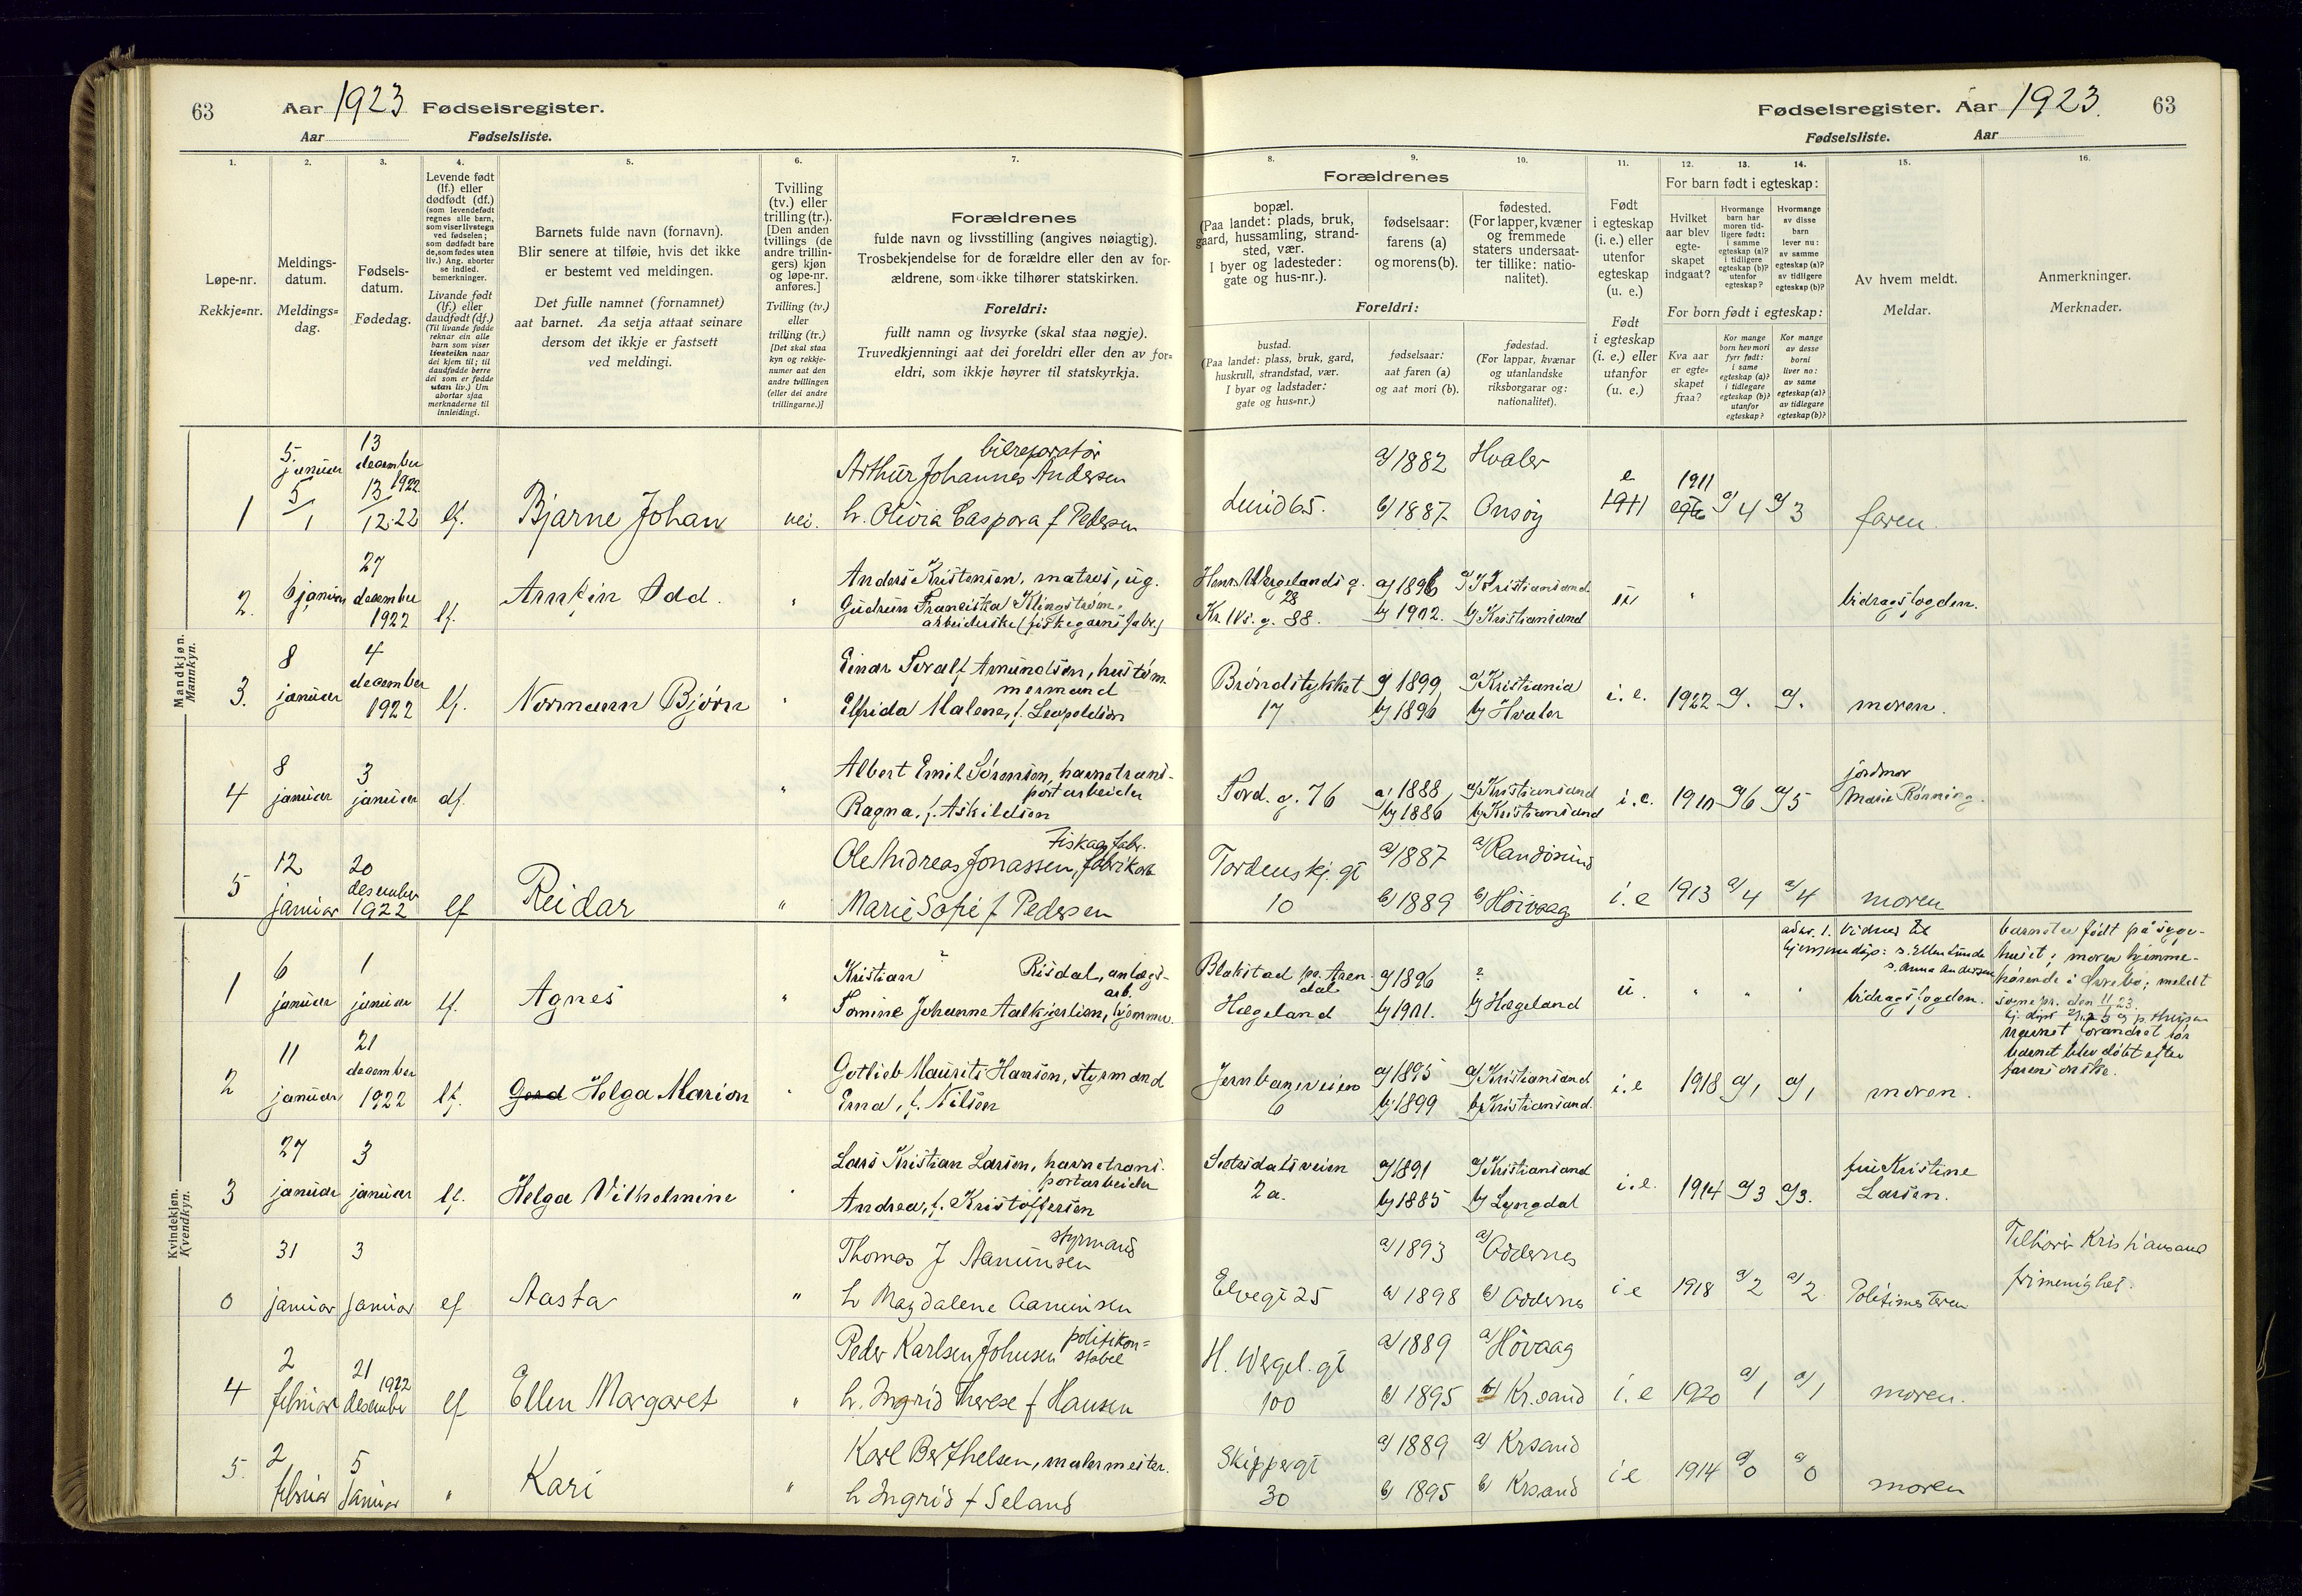 63 Aar 1923 Fødselsregister.
Aar Fødselsliste.
Fødselsregister. Aar 1923. 63
Fødselsliste. Aar
1. 2. 3. 4. 5. 6. 7. 8. 9. 10. 11. 12. 13. 14. 15. 16.
Løpe-nr.
Rekkje=nr.
Meldings-
datum.
Meldings=
dag.
Fødsels-
datum.
Fødedag.
Levende født
(lf.) eller
dødfødt (df.)
(som levendefødt
regnes alle barn,
som viser livstegn
ved fødselen;
som dødfødt bare
de, som fødes uten
liv.) Ang. aborter
se indled.
bemerkninger.
Livande født
(lf.) eller
daudfødt (df.)
(Til livande fødde
reknar ein alle
barn som viser
livsteikn naar
dei kjem til; til
daudfødde berre
dei som er fødde
utan liv.) Um
abortar sjaa
merknaderne til
innleidingi.
Barnets fulde navn (fornavn).
Blir senere at tilføie, hvis det ikke
er bestemt ved meldingen.
Det fulle namnet (fornamnet)
aat barnet. Aa setja attaat seinare
dersom det ikkje er fastsett
ved meldingi.
Tvilling
(tv.) eller
trilling (tr.).
[Den anden
tvillings (de
andre trillin-
gers) kjøn
og løpe-nr.
anføres.]
Tvilling (tv.)
eller
trilling (tr.)
[Det skal staa
kyn og rekkje-
numer aat den
andre tvillingen
(eller dei andre
trillingarne.)]
Forældrenes
fulde navn og livsstilling (angives nøiagtig).
Trosbekjendelse for de forældre eller den av for-
ældrene, som ikke tilhører statskirken.
Foreldri:
fullt namn og livsyrke (skal staa nøgje).
Truvedkjenningi aat dei foreldri eller den av for=
eldri, som ikkje høyrer til statskyrkja.
Forældrenes
bopæl.
(Paa landet: plads, bruk,
gaard, hussamling, strand-
sted, vær.
I byer og ladesteder:
gate og hus-nr.).
fødselsaar:
farens (a)
og morens (b).
fødested.
(For lapper, kvæner
og fremmede
staters undersaat-
ter tillike: natio-
nalitet).
Foreldri:
bustad.
(Paa landet: plass, bruk, gard,
huskrull, strandstad, vær.
I byar og ladstader:
gate og hus=nr.)
fødselsaar:
aat faren (a)
og aat mori (b).
fødestad.
(For lappar, kvænar
og utanlandske
riksborgarar og:
nationalitet).
Født
i egteskap
(i. e.) eller
utenfor
egteskap
(u. e.)
Født
i egteskap
(i. e.) eller
utanfor
(u. e.)
For barn født i egteskap:
Hvilket
aar blev
egte-
skapet
indgaat?
Hvormange
barn har
moren tid-
ligere født:
i samme
egteskap (a)?
i tidligere
egteskap (b)?
utenfor
egteskap?
Hvormange
av disse
barn
lever nu:
av samme
egteskap (a)?
av tidligere
egteskap (b)?
For born født i egteskap:
Kva aar
er egte=
skapet
fraa?
Kor mange
born hev mori
fyrr født:
i same
egteskap (a)?
i tidlegare
egteskap (b)?
utanfor
egteskap?
Kor mange
av desse
borni
liver no:
av same
egteskap (a)?
av tidlegare
egteskap (b)?
Av hvem meldt.
Meldar.
Anmerkninger.
Merknader.
Mandkjøn.
Mannkyn.
5. januar 5/1 13 december 1922 13/12.22
bilreparatør
Arthur Johannes Andersen a/ 1882 Hvaler
1 lf. Bjarne Johan nei. h. Olivia Caspora f Pedersen Lund 65. b/ 1887. Onsøy e 1911 1911 egte a/ 4 a/ 3 faren.
27
Anders Kristensen, matros, ug. Henr. Wergelands g. 28 a/ 1896 a/ Kristiansand
2. 6 januar december 1922 lf. Odd. " Gudrun Franciska Klingstrøm,
arbeiderske (fiskegarnsfabr.) Kr. IVs. g. 88. b/ 1902. b/ Kristiansand u " bidragsfogden.
8 4
Einar Toralf Amundsen, hustøm
mermand Brøndstykket a/ 1899 a/ Kristiania
3. januar december 1922 lf. Normann Bjørn " Elfrida Malene, f. Leopoldson 17 b/ 1896 b/ Hvaler i. e. 1922 a/. a/. moren.
8 3
Albert Emil Sørensen, havnetrans-
portarbeider Tord. g. 76 a/ 1888, a/ Kristiansand jordmor
4 januar januar df. " Ragna, f. Askildsen b/ 1886 b/ Kristiansand i. e. 1910 a/ 6 a/ 5 Marie Rønning.
12 20
Fiskaa fabr.
Ole Andreas Jonassen, fabrikarb Tordenskj. gt a/ 1887 a/ Randøsund
5 januar desember 1922 lf Reidar " Marie Sofie f Pedersen 10 b/ 1889 b/ Höivaag i. e 1913 a/ 4 a/ 4 moren
Kvindekjøn.
Kvendkyn.
6 1
Kristian ? Risdal, anlægs-
arb. Blakstad pr. Aren
dal a/ 1896 ?
1 januar januar lf. Agnes " Tomine Johanne Aalkjerlien, hjemmev. Hægeland b/ 1901. b/ Hægeland u. " " " bidragsfogden.
vidner til
hjemmedåp: s. Ellen Lunde
s. Anna Andersen
barnet er født på syge-
huset; moren hjemme-
hørende i Øvrebø; meldt
sognepr. den 11/1 23.
11 21
Gotlieb Maurits Hansen, styrmand Jernbaneveien a/ 1895 a/ Kristiansand
2 januar december 1922 lf. Gerd Helga Marion " Erna, f. Nilsen 6 b/ 1899 b/ Kristiansand. i. e 1918 a/ 1 a/ 1 moren.
navnet forandret før
barnet blev døbt efter
farens ønske.
27 3
Lars Kristian Larsen, havnetrans.
portarbeider Setesdalsveien a/ 1891 a/ Kristiansand fru Kristine
3 januar januar lf. Helga Vilhelmine " Andrea, f. Kristoffersen 2 a. b/ 1885 b/ Lyngdal i. e. 1914 a/ 3 a/ 3. Larsen.
31 3
styrmand
Thomas J Aamunsen a/ 1893 a/ Oddernes
0 januar januar lf Aasta " h Magdalene Aamunsen Elvegt 25 b/ 1898 b/ Oddernes i e 1918 a/ 2 a/ 2. Politimesteren
Tilhörer Kristiansand
frimenighet.
2 21
Peder Karlsen Johnsen politikon=
stabel H. Wergel. gt a/ 1889 a/ Hövaag
4 februar 1922 desember lf Ellen Margaret " h. Ingrid Therese f Hansen 100 b/ 1895 b/ Kr.sand i. e 1920 a/ 1 a/ 1 moren.
2 5
Karl Berthelsen, malermester. Skippergt a/ 1889 a/ Krsand
5. februar januar " Kari " h Ingrid f Seland 30 b/ 1895 b/ Krsand i e 1914 a/ 0 a/ 0 moren